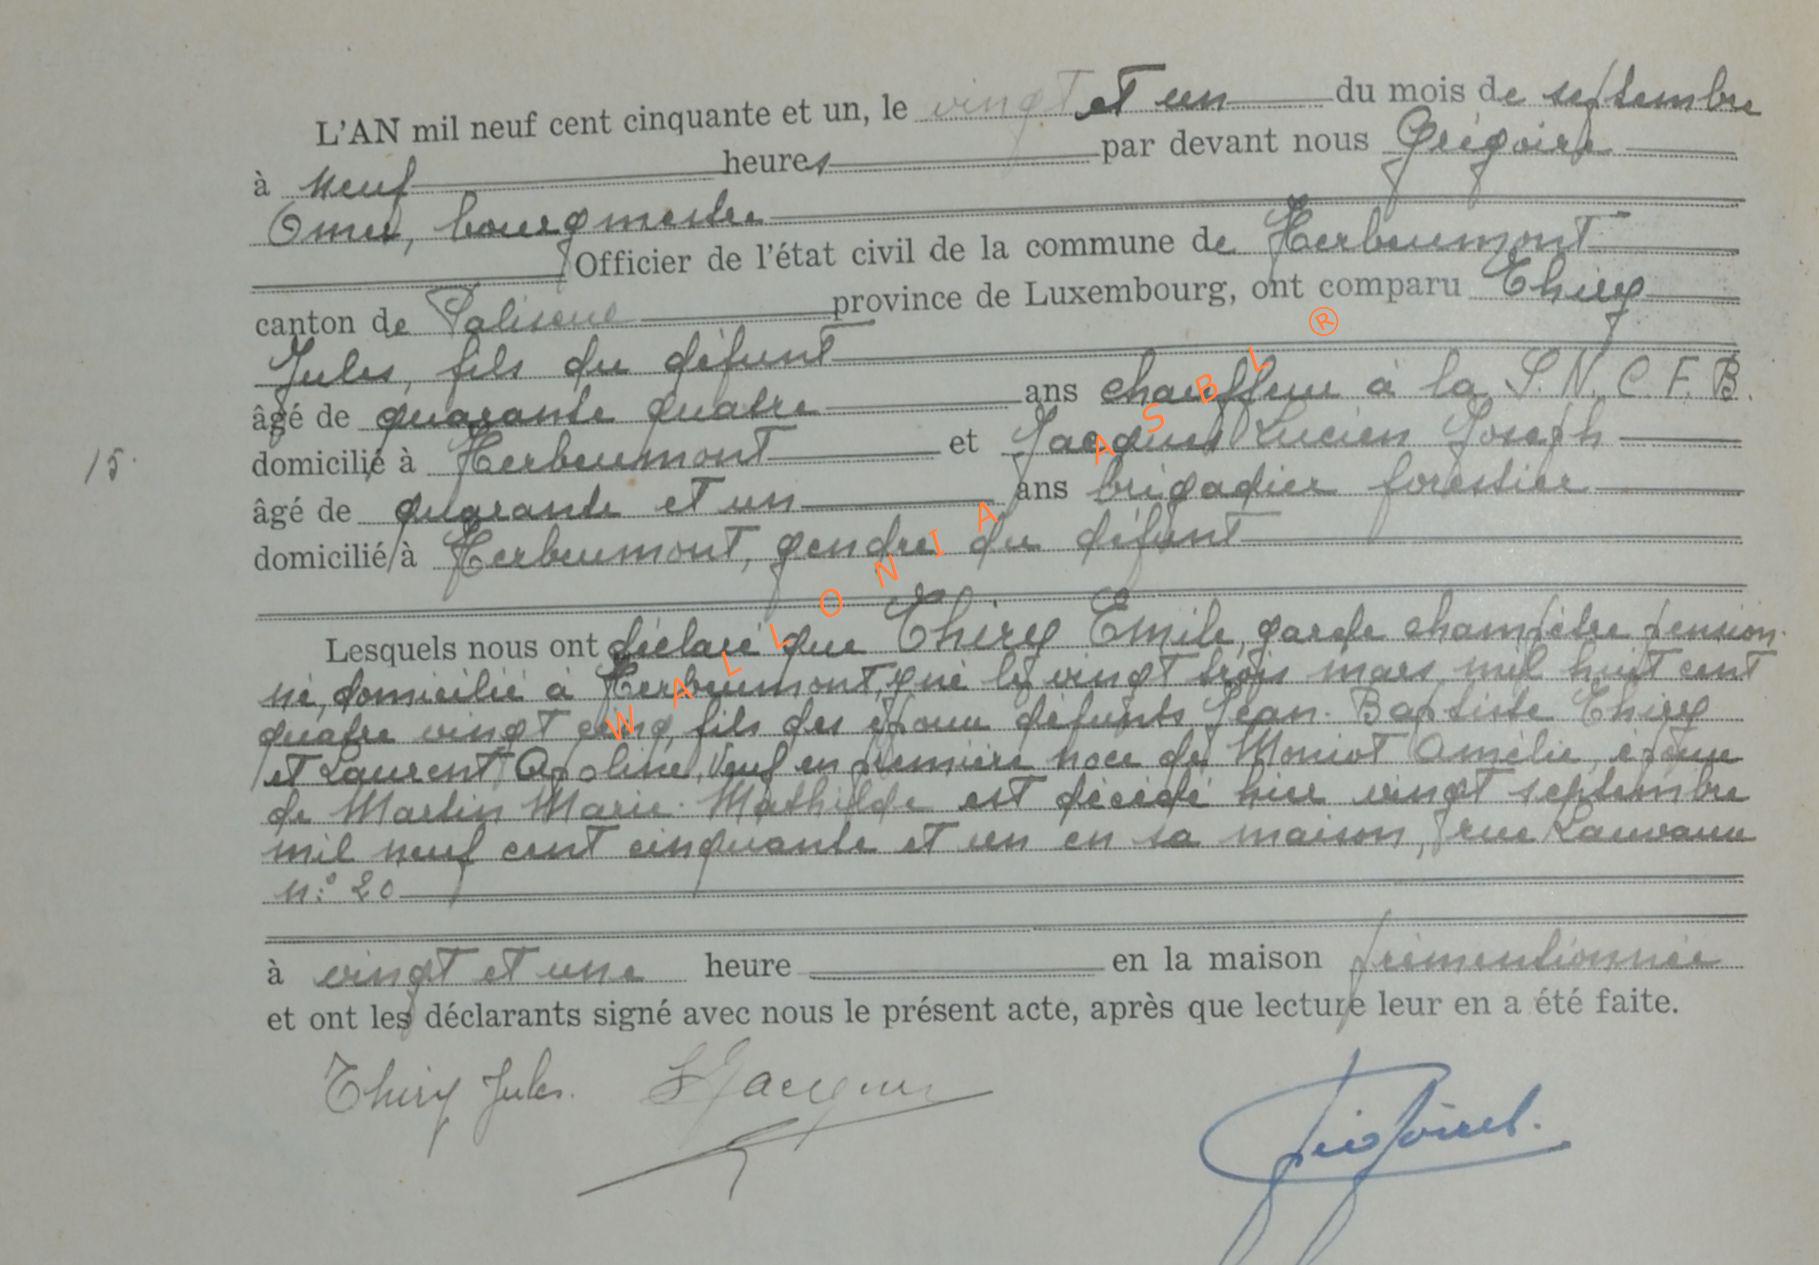 L'AN mil neuf cent cinquante et un, le vingt et un du mois de septembre
à neuf heures par devant nous Grégoire
Omer, bourgmestre
Officier de l'état civil de la commune de Herbeumont
canton de Paliseul province de Luxembourg, ont comparu Thiry
Jules, fils du défunt
âgé de quarante quatre ans chauffeur à la S.N.C.F.B.
domicilié à Herbeumont et Jacques Lucien Joseph
15.
âgé de quarante et un ans brigadier forestier
domicilié à Herbeumont, gendre du défunt
Lesquels nous ont déclaré que Thiry Emile, garde champêtre pension-
né, domicilié à Herbeumont, y né le vingt trois mars mil huit cent
quatre vingt cinq fils des époux défunts Jean-Baptiste Thiry
et Laurent Apoline, Veuf en première noce de Moniot Amélie, époux
de Martin Marie-Mathilde est décédé hier vingt septembre
mil neuf cent cinquante et un en sa maison, rue
n:° 20
à vingt et une heure en la maison prémentionnée
et ont les déclarants signé avec nous le présent acte, après que lecture leur en a été faite.
Thiry Jules. LJacques
WALLONIA ASBL ®